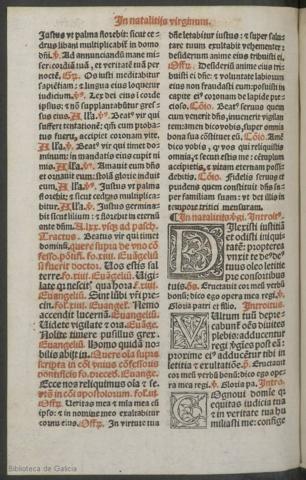 In natalitijs virginum.
Justus vt palma florebit: sicut ce-
drus libani multiplicabit in domo
dñi. ℣. Ad annunciandũ mane mi-
sericordiã tuã, et veritatẽ tuã per
nocte. Gr. Os iusti meditabitur
sapiẽtiam: et lingua eius loquetur
iudiciũ. ℣. Lex dei eius ĩ corde
ipsius: et nõ supplantabũtur gres-
sus eius. Alla. ℣. Beatꝰ vir qui
suffert tentationẽ: qm̃ cum proba-
tus fuerit, accipiet coronam vite.
Alla. ℣. Beatꝰ vir qui timet do-
minum: in mandatis eius cupit ni-
mis. Alla. ℣. Amauit eum dñs
et ornauit eum: stolã glorie induit
eum. Alla. ℣. Justus vt palma
florebit: et sicut cedrus multiplica-
bitur. Alla. ℣. Justus germina-
bit sicut lilium: et florebit in eternũ
ante dñm.
Tractus. Beatus vir qui timet
dominũ,
si fuerit doctor. Vos estis sal
terre.
late qr nescitꝭ qua hora.
Euangeliũ. Sint lũbi vr̃i pre-
cin.
accendit lucernã. Euangelium.
Videte vigilate et ora. Euãge.
Nolite timere pusillus grex.
Euangeliũ. Homo quidã no-
bilis abijt in.
Ecce nos reliquimus oĩa et se-
Offr. Veritas mea et mĩa mea cũ
ipso: et in nomine meo exaltabitur
cornu eius. Offr. In virtute tua
dñe letabitur iustus: et super saluta-
re tuum exultabit vehementer:
desiderium anime eius tribuisti ei.
Offr. Desideriũ anime eius tri-
buisti ei dñe: et voluntate labiorum
eius non fraudasti eum: posuisti in
capite eius coronam de lapide pre-
cioso. Cõio. Beatꝰ seruus quem
cum venerit dñs, inuenerit vigilan-
tem: amen dico vobis, super omnia
bona sua cõstituet eũ. Cõio. Amẽ
dico vobis, qꝫ vos qui reliquistis
omnia, et secuti estis me: cẽtuplum
accipietis, et vitam eternam possi-
debitis. Cõio. Fidelis seruus et
prudens quem constituit dñs su-
per familiam suam: vt det illis in
tempore tritici mensuram.
In natalitijs vgĩ. Introitꝰ.
Dilexisti iustitiã
et odisti iniqui-
tatẽ: propterea
vnxit te deꝰ de-
us tuus oleo letitie
pre consortibus
tuis. ps. Eructauit cor meũ verbũ
bonũ: dico ego opera mea regi. ℣.
Gloria patri et filio. Introitus.
Vultum tuũ depre-
cabunt̃ oẽs diuites
plebis: adducentur
regi v̓gines post eã:
proxime eiꝰ adducẽtur tibi in
letitia et exultatiõe. ps. Eructauit
cor meũ verbũ bonũ: dico ego ope-
ra mea regi. ℣. Gloria pa. Intro.
Cognoui domĩe qꝛ
equitas iudicia tua
et in veritate tua hu
miliasti me: confige
Biblioteca de Galicia